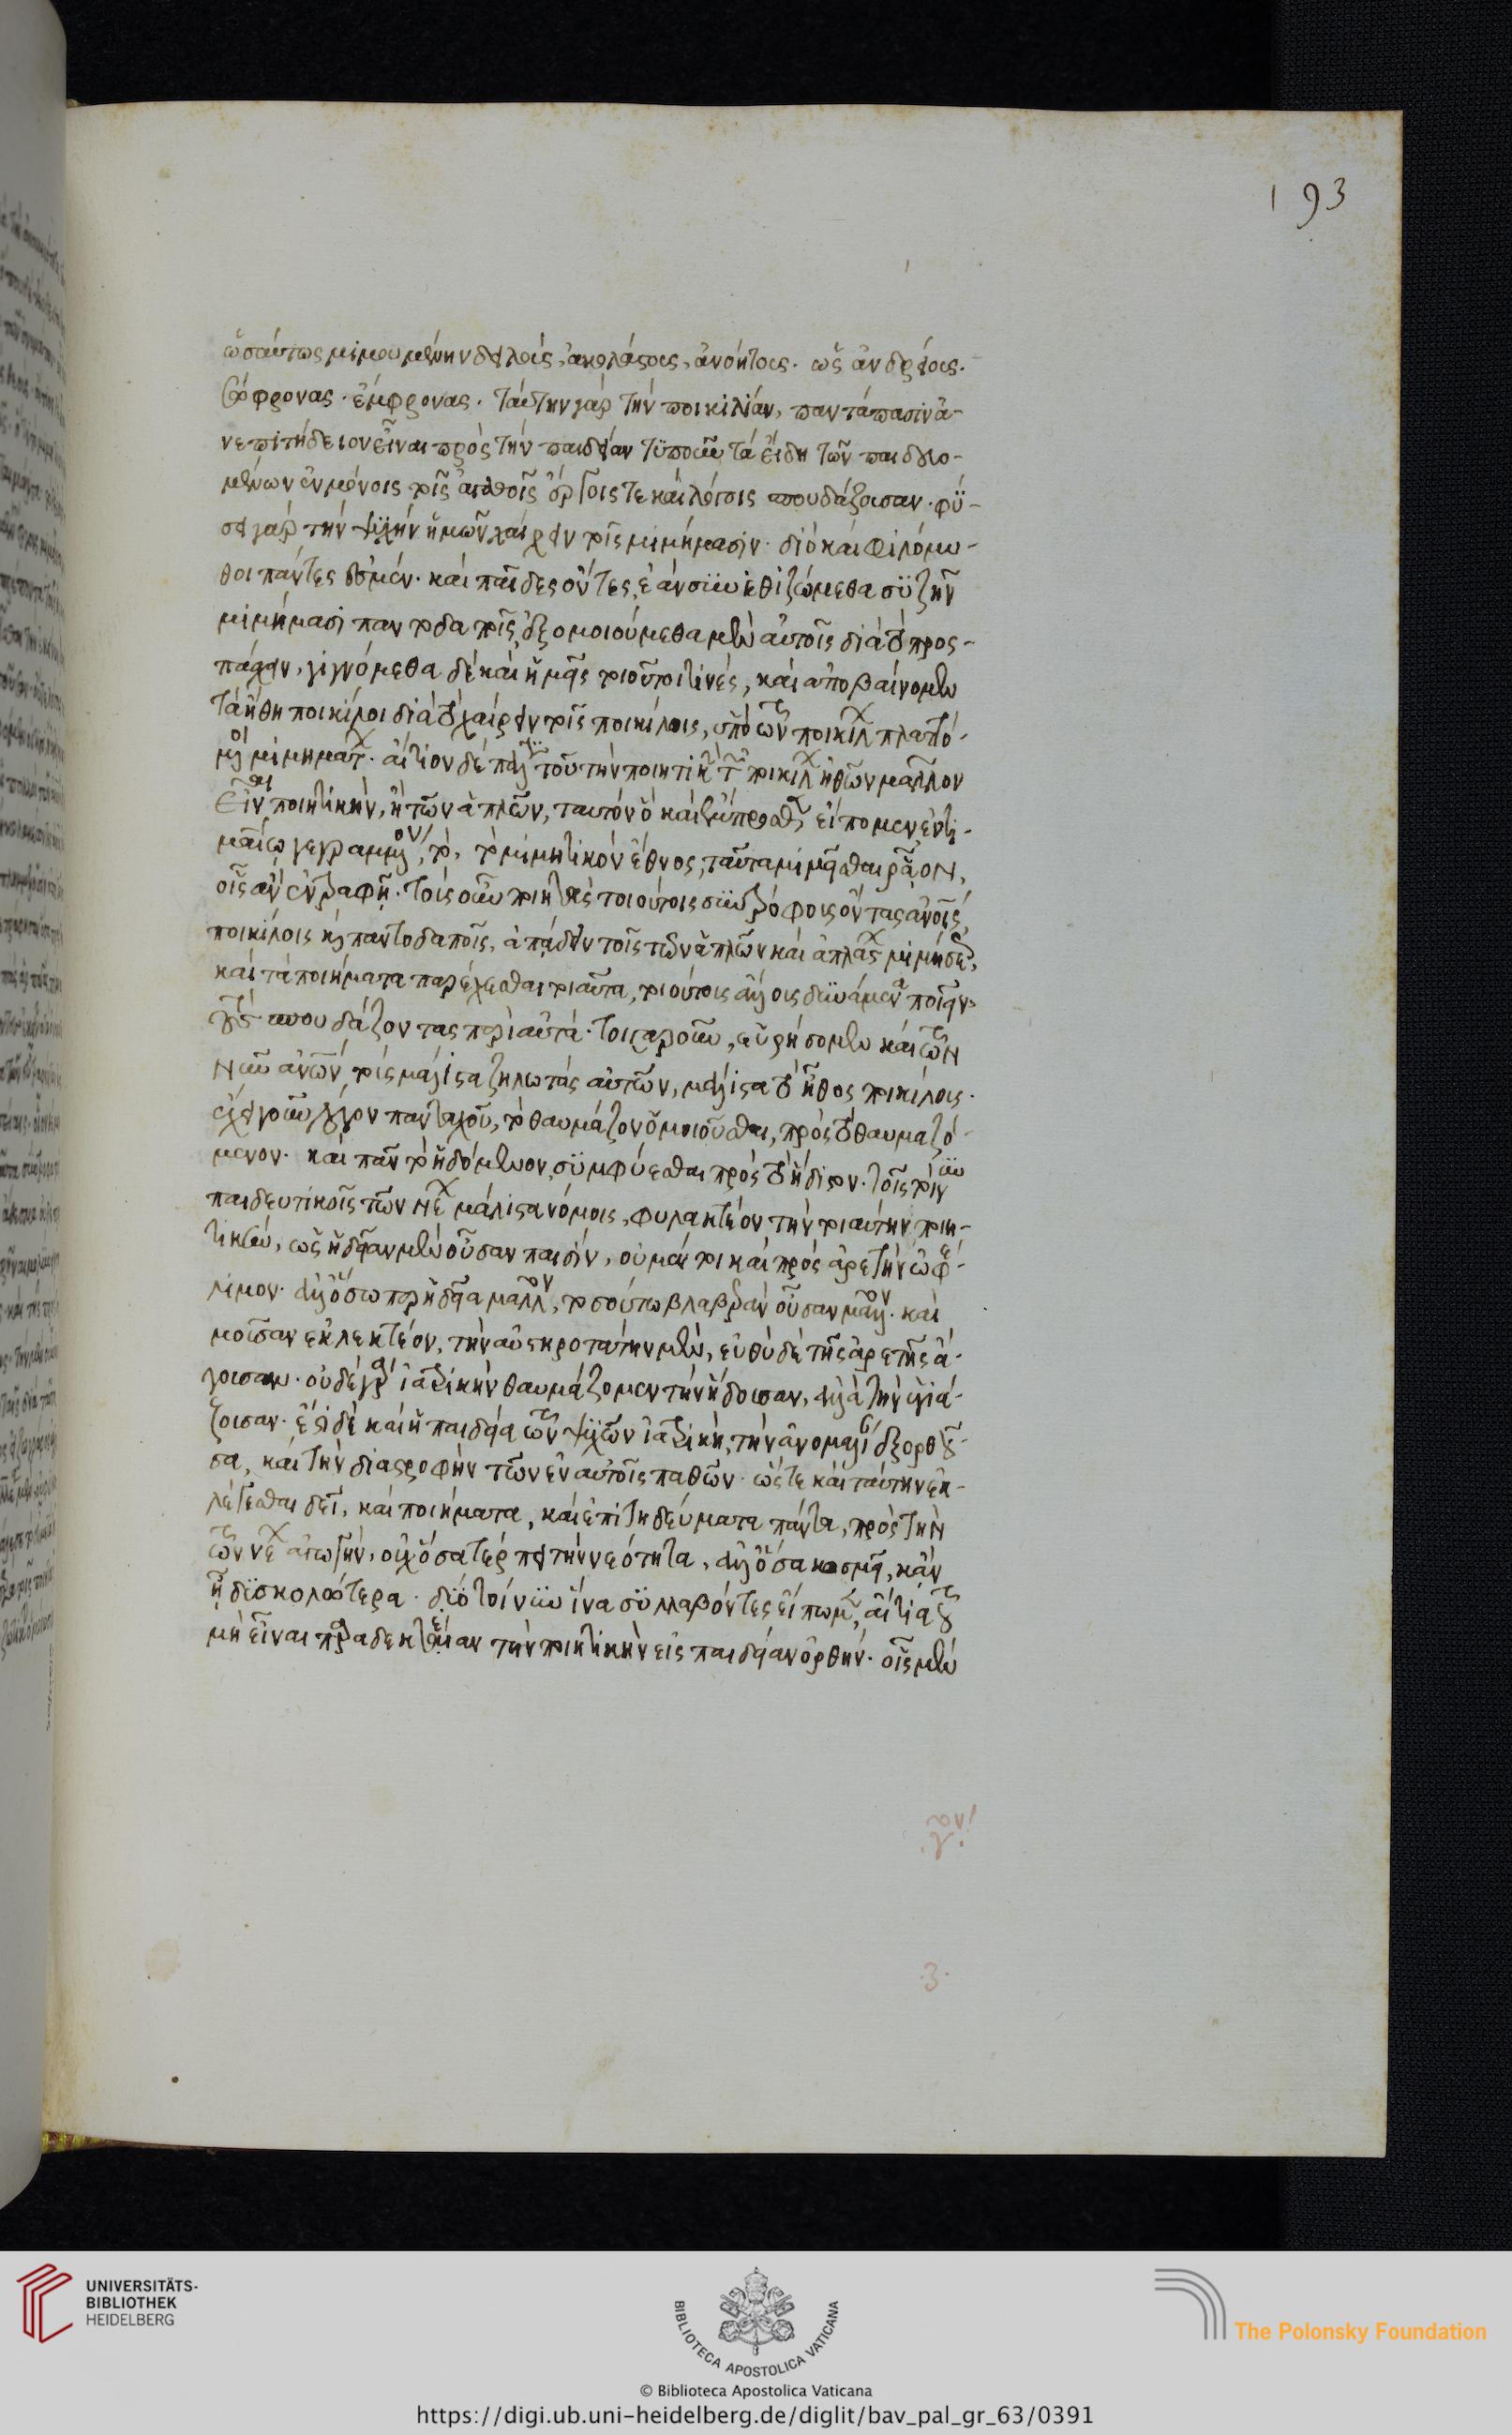 193
ὡσαύτως μιμουμένην δειλούς, ἀκολάστους, ἀνοήτους. ὡς ἀνδρείους.
σώφρονας. ἔμφρονας. ταύτην γὰρ τὴν ποικιλίαν, παντάπασιν ἀ-
νεπιτήδειον εἶναι πρὸς τὴν παιδείαν τυποῦν τὰ εἴδη τῶν παιδευο-
μένων ἐν μόνοις τοῖς ἀγαθοῖς ἔργοις τε καὶ λόγοις σπουδάζουσαν. φύ-
σει γὰρ τὴν ψυχὴν ἡμῶν χαίρειν τοῖς μιμήμασιν. διὸ καὶ φιλόμυ-
θοι πάντες ἐσμέν. καὶ παῖδες ὄντες, ἐὰν συνεθιζώμεθα συζῆν
μιμήμασι παντοδαποῖς, ἐξομοιούμεθα μὲν αὐτοῖς διὰ τὸ προσ-
πάσχειν, γιγνόμεθα δὲ καὶ ἡμεῖς τοιοῦτοί τινες, καὶ ἀποβαίνομεν
τὰ ἤθη ποικίλοι διὰ τὸ χαίρειν τοῖς ποικίλοις, ὑπὸ τῶν ποικίλων πλαττό-
μενοι μιμημάτων. αἴτιον δὲ πάλιν τοῦ τὴν ποιητικὴν τῶν ποικίλων ἠθῶν μᾶλλον
εἶναι ποιητικήν, ἢ τῶν ἁπλῶν, ταυτὸν ὃ καὶ ἔμπροσθεν εἴπομεν, ἐν τι-
μαίῳ γεγραμμένον, τὸ, τὸ μιμητικὸν ἔθνος, ταῦτα μιμεῖσθαι ῥᾷον,
οἷς ἂν ἐντραφῇ. τοὺς οὖν ποιητὰς τοιούτοις συντρόφους ὄντας ἀνθρώποις,
ποικίλοις καὶ παντοδαποῖς, ἀπᾴδειν τοῖς τῶν ἁπλῶν καὶ ἁπλαῖς μιμήσεσι,
καὶ τὰ ποιήματα παρέχεσθαι τοιαῦτα, τοιούτους ἄλλους δυνάμενα ποιεῖν
τοὺς σπουδάζοντας περὶ αὐτά. τοιγαροῦν, εὑρήσομεν καὶ τῶν
νῦν ἀνθρώπων τοὺς μάλιστα ζηλωτὰς αὐτῶν, μάλιστα τὸ ἦθος ποικίλους.
ἔχει γοῦν λόγον πανταχοῦ, τὸ θαυμάζον ὁμοιοῦσθαι, πρὸς τὸ θαυμαζό-
μενον. καὶ πᾶν τὸ ἡδόμενον, συμφύεσθαι πρὸς τὸ ἥδιστον. τοῖς τοίνυν
παιδευτικοῖς τῶν νέων μάλιστα νόμοις, φυλακτέον τὴν τοιαύτην ποιη-
τικήν, ὡς ἡδεῖαν μὲν οὖσαν παισίν, οὐ μέντοι καὶ πρὸς ἀρετὴν ὠφέ-
λιμον. ἀλλ' ὅσῳ περ ἡδεῖα μᾶλλον, τοσούτῳ βλαβερὰν οὖσαν μᾶλλον. καὶ
μοῦσαν ἐκλεκτέον, τὴν αὐστηροτάτην μὲν, εὐθὺ δὲ τῆς ἀρετῆς ἄ-
γουσαν. οὐδὲ γὰρ ἰατρικὴν θαυμάζομεν τὴν ἥδουσαν, ἀλλὰ τὴν ὑγιά-
ζουσαν. ἔστι δὲ καὶ ἡ παιδεία τῶν ψυχῶν ἰατρική, τὴν ἀνωμαλίαν ἐξορθοῦ-
σα, καὶ τὴν διαστροφὴν τῶν ἐν αὐτοῖς παθῶν. ὥστε καὶ ταύτην ἐκ-
λέγεσθαι δεῖ, καὶ ποιήματα, καὶ ἐπιτηδεύματα πάντα, πρὸς τὴν
τῶν νέων ἀγωγήν, οὐχ ὅσα τέρπει τὴν νεότητα, ἀλλ' ὅσα κοσμεῖ, κἂν
ᾖ δυσκολώτερα. δύο τοίνυν ἵνα συλλαβόντες εἴπωμεν, αἴτια τοῦ
μὴ εἶναι παραδεκτέαν τὴν ποιητικὴν εἰς παιδείαν ὀρθήν. οἷς μὲν
UNIVERSITÄTS-
BIBLIOTHEK
HEIDELBERG
BIBLIOTECA APOSTOLICA VATICANA
The Polonsky Foundation
© Biblioteca Apostolica Vaticana
https://digi.ub.uni-heidelberg.de/diglit/bav_pal_gr_63/0391